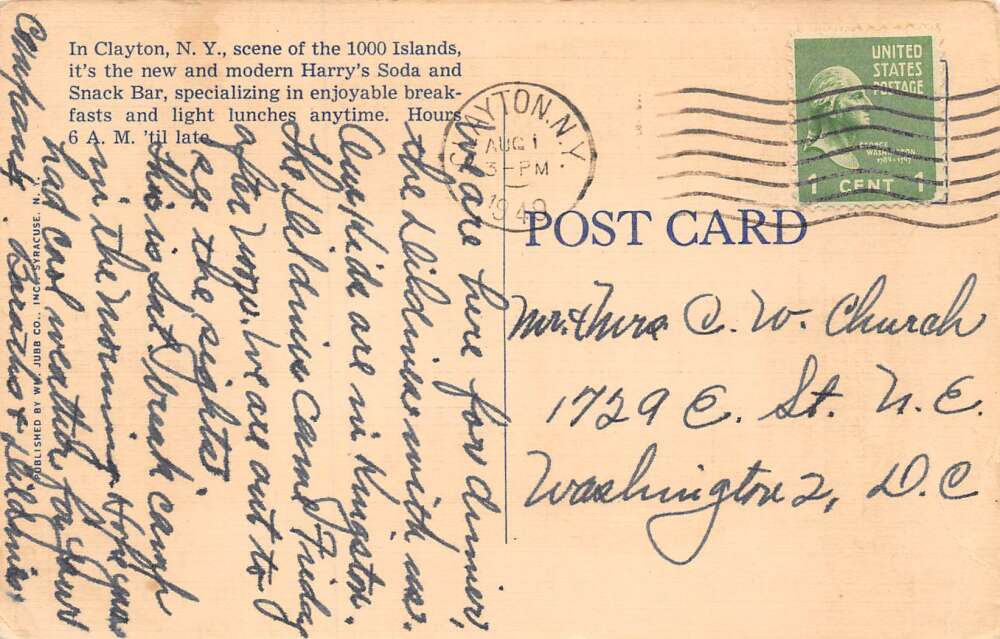 In Clayton, N. Y., scene of the 1000 Islands,
it's the new and modern Harry's Soda and
Snack Bar, specializing in enjoyable break-
fasts and light lunches anytime. Hours
6 A. M. 'til late.
CLAYTON, N.Y.
AUG 1
3-PM
1949
UNITED
STATES
POSTAGE
GEORGE
WASHINGTON
1789-1797
1 CENT 1
POST CARD
Mr. & Mrs. C. W. Church
1729 E. St. N. E.
Washington 2, D. C
We are here for dinner,
the Wildnies with us.
are in Kingston.
The Wildnies came Friday
after . We are out to
see the sights.
This is Sat. Break camp
in the morning. Hope you
had cool weather for your
company. &  Wildnies.
PUBLISHED BY WM. JUBB CO., INC., SYRACUSE, N. Y.